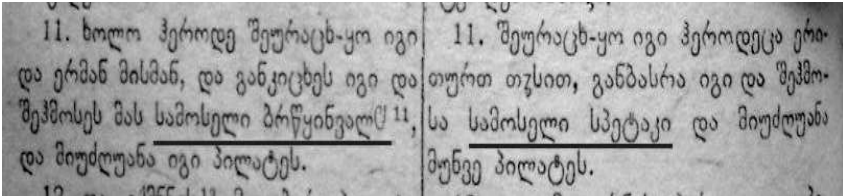 11. ხოლო ჰეროდე შეურაცხ-ყო იგი
და ერმან მისმან, და განკიცხეს იგი და
შეჰმოსეს მას სამოსელი ბრწყინვალჱ 11,
და მიუძღუანა იგი პილატეს.
11. შეურაცხ-ყო იგი ჰეროდეცა ერი-
თურთ თჳსით, განბასრა იგი და შეჰმო-
სა სამოსელი სპეტაკი და მიუძღუანა
მუნვე პილატეს.